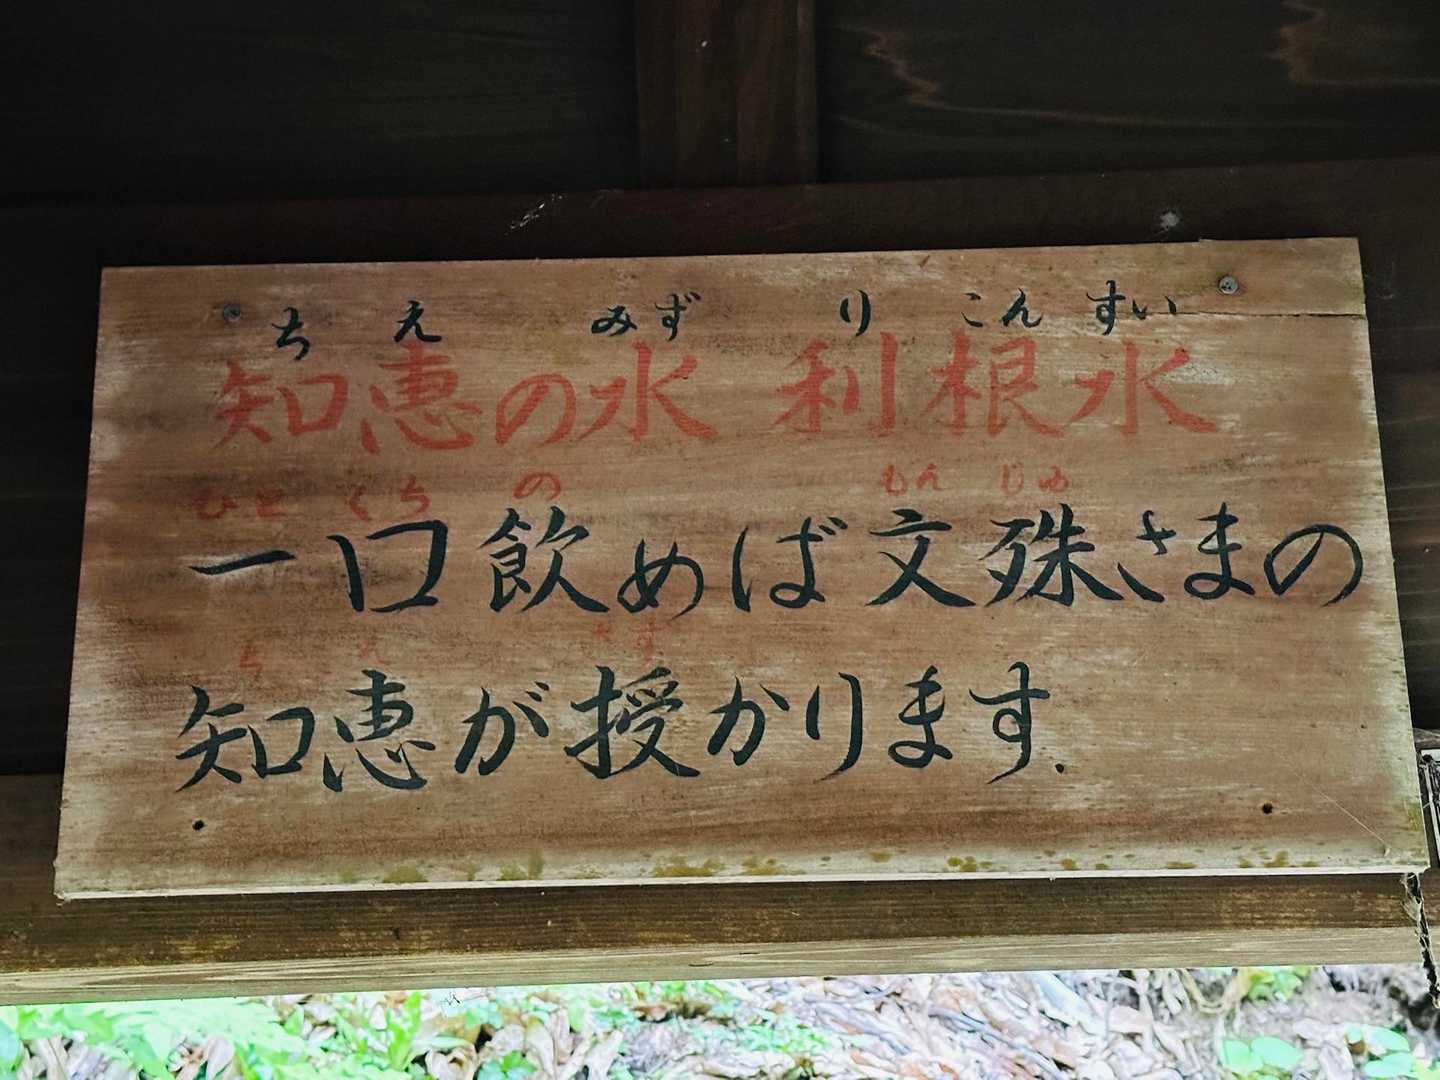 ちえ みず りこんすい
知恵の水 利根水
ひとくち の もんじゅ
一口飲めば文殊さまの
ちえ さず
知恵が授かります.